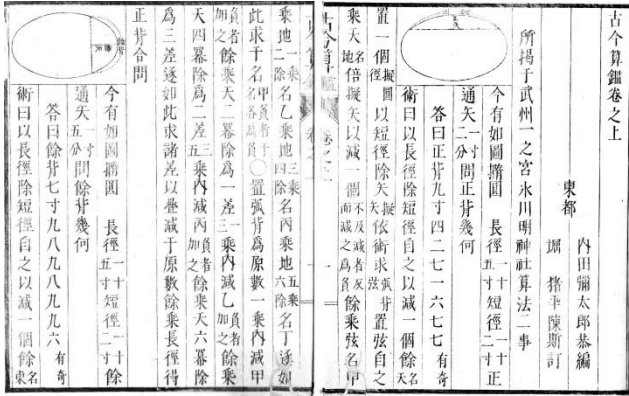 古今算鑑卷之上
東都 內田彌太郎恭編
堀 豬平陳斯訂
所揭于武州一之宮氷川明神社算法二事
今有如圖撱圓 長徑一十五寸短徑一十二寸正
通矢一寸二分問正背幾何
答曰正背九寸四二七一六七七有奇
術曰以長徑除短徑自之以減一個餘名天
置一個擬圓徑以短徑除矢擬矢依術求弧背弦置弦自之
乘天名地倍擬矢以減一個不及減者反而減之為負餘乘弦名甲
乘地一乘二除名乙乘地三乘四除名丙乘地五乘六除名丁逐如
此求干名甲負者十名各為負○置弧背為原數一乘內減甲
負者加之餘乘天二冪除為一差一乘內減乙負者加之餘乘
天四冪除為二差三乘內減丙負者加之餘乘天六冪除
為三差逐如此求諸差以疊減于原數餘乘長徑得
正背合問
今有如圖撱圓 長徑一十五寸短徑一十二寸餘
通矢一寸五分問餘背幾何
答曰餘背七寸九八九八九九六有奇
術曰以長徑除短徑自之以減一個餘名東